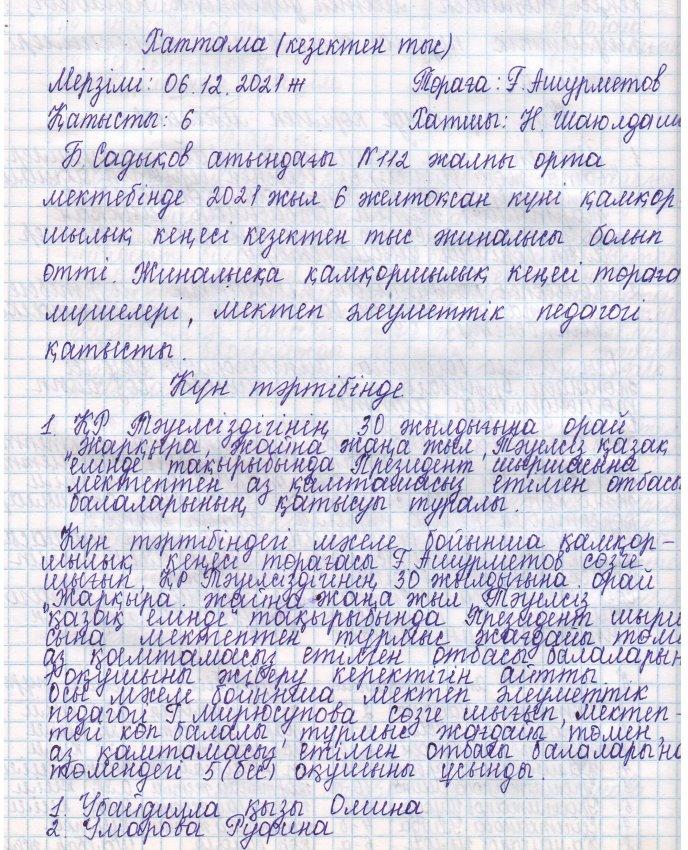 Хаттама (кезектен тыс)
Мерзімі: 06.12.2021ж Төраға: Ғ.Ашурметов
Қатысты: 6 Хатшы: Н. Шаюлдаши
Б.Садықов атындағы №112 жалпы орта
мектебінде 2021 жыл 6 желтоқсан күні қамқор
шылық кеңесі кезектен тыс жиналысы болып
өтті. Жиналысқа қамқоршылық кеңесі төраға
мүшелері, мектеп әлеуметтік педагогі
қатысты.
Күн тәртібінде
1. ҚР Тәуелсіздігінің 30 жылдығына орай
"Жарқыра, жайна жаңа жыл, Тәуелсіз қазақ
елінде тақырыбында Президент шыршасына
мектептен аз қамтамасыз етілген отбасы
балаларының қатысуы туралы.
Күн тәртібіндегі мәселе бойынша қамқор-
шылық кеңесі төрағасы Ғ.Ашурметов сөзге
шығып, ҚР Тәуелсіздігінің 30 жылдығына орай
"Жарқыра. жайна жаңа жыл Тәуелсіз
қазақ елінде" тақырыбында Президент шырша
сына мектептен тұрмыс жағдайы төме
аз қамтамасыз етілген отбасы балаларын
оқушыны жіберу керектігін айтты.
Осы мәселе бойынша мектеп әлеуметтік
педагогі Г.Мирюсупова сөзге шығып, мектеп-
тегі көп балалы, тұрмыс жағдайы төмен,
аз қамтамасыз етілген отбасы балаларына
төмендегі 5 (бес) оқушыны ұсынды.
1. Убайдилла қызы Омина
2. Умарова Руфина